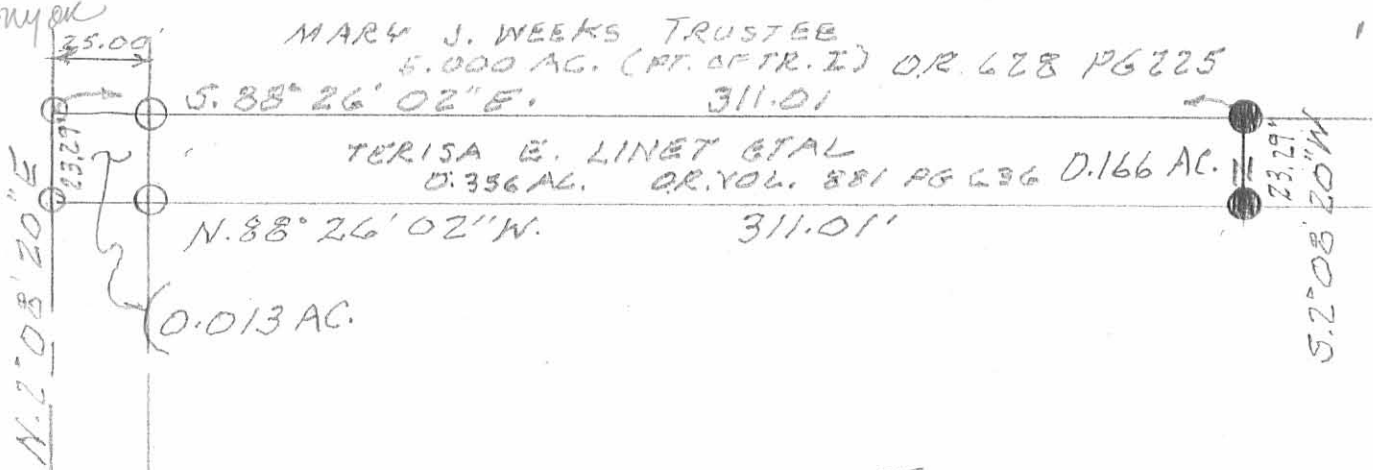 25.00'
MARY J. WEEKS TRUSTEE
5.000 AC. (PT. OF TR. I) O.R. 628 PG 225
S. 88° 26' 02" E. 311.01
23.29'
TERISA E. LINET ETAL
0.336 AC. O.R. VOL. 881 PG 636 0.166 AC.
23.29'
N. 88° 26' 02" W. 311.01'
N. 2° 08' 20" E
S. 2° 08' 20" W
0.013 AC.